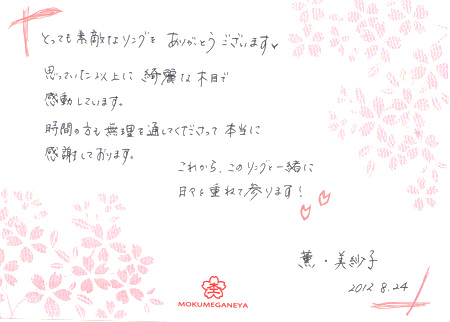 とっても素敵なリングを ありがとうございます♥
思っていた以上に 綺麗な木目で
感動しています。
時間の方も無理を通してくださって 本当に
感謝しております。
これから、このリングと一緒に
日々を重ねて参ります!
薫・美紗子
2012 8.24
MOKUMEGANEYA